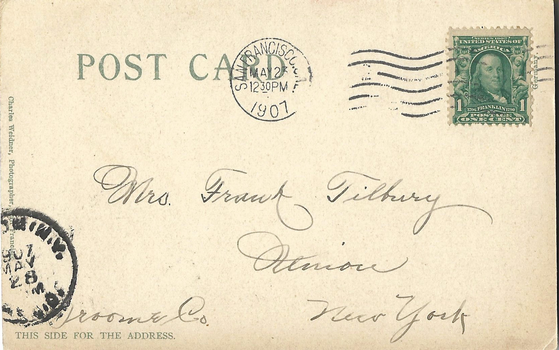 POST CARD
SAN FRANCISCO, CAL.
MAY 2
12 30 PM
1907
UNITED STATES OF AMERICA
FRANKLIN
1 1
POSTAGE
ONE CENT
Charles Weidner, Photographer, San Francisco
Mrs. Frank Tilbury
Union
Broome Co. New York
N.Y.
1907
MAY
28
M
THIS SIDE FOR THE ADDRESS.